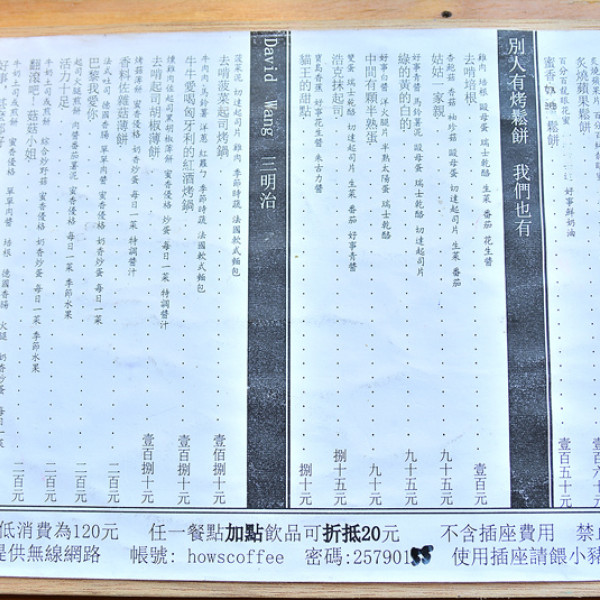 炙燒蘋果鬆餅
壹百六十元
百分百龍眼花蜜
蜜香 鬆餅
好事鮮奶油
壹百五十元
別人有烤鬆餅 我們也有
雞肉 培根 歐母蛋 瑞士乾酪 生菜 番茄 花生醬
去啃培根
壹百元
杏鮑菇 香菇 袖珍菇 歐母蛋 切達起司片 生菜 番茄
姑姑一家親
捌十五元
好事青醬 馬鈴薯泥 歐母蛋 瑞士乾酪 切達起司片
綠的黃的白的
九十五元
好事白醬 洋火腿片 半熟太陽蛋 瑞士乾酪
中間有顆半熟蛋
九十元
雙蛋 瑞士乾酪 切達起司片 生菜 番茄 好事青醬
浩克抹起司
捌十五元
寶島香蕉 好事花生醬 朱古力醬
貓王的甜點
捌十元
David Wang 三明治
菠菜泥 切達起司片 雞肉 季節時蔬 法國軟式麵包
去啃菠菜起司烤鍋
壹佰捌十元
牛肉肉 馬鈴薯 洋蔥 紅蘿ㄅ 季節時蔬 法國軟式麵包
牛牛愛喝匈牙利的紅酒烤鍋
壹百捌十元
燻雞肉佐起司黑胡椒薄餅 蜜香優格 奶香炒蛋 每日一菜 特調醬汁
去啃起司胡椒薄餅
壹百捌十元
烤菇薄餅 蜜香優格 奶香炒蛋 每日一菜 特調醬汁
香料佐雜菇薄餅
二百元
法式吐司 德國香腸 單單肉醬 蜜香優格 奶香炒蛋 每日一菜
巴黎我愛你
二百元
起司火腿煎餅 肉醬番茄薯泥 蜜香優格 每日一菜 季節水果
活力十足
二百元
牛奶土司或煎餅 綜合炒野菇 蜜香優格 奶香炒蛋 每日一菜 季節水果
翻滾吧！菇菇小姐
二百元
牛奶土司或煎餅 蜜香優格 單單肉醬 培根 德國香腸 火腿 奶香炒蛋 每日一菜
低消費為120元 任一餐點加點飲品可折抵20元 不含插座費用 禁止
提供無線網路 帳號: howscoffee 密碼:25790 使用插座請餵小豬